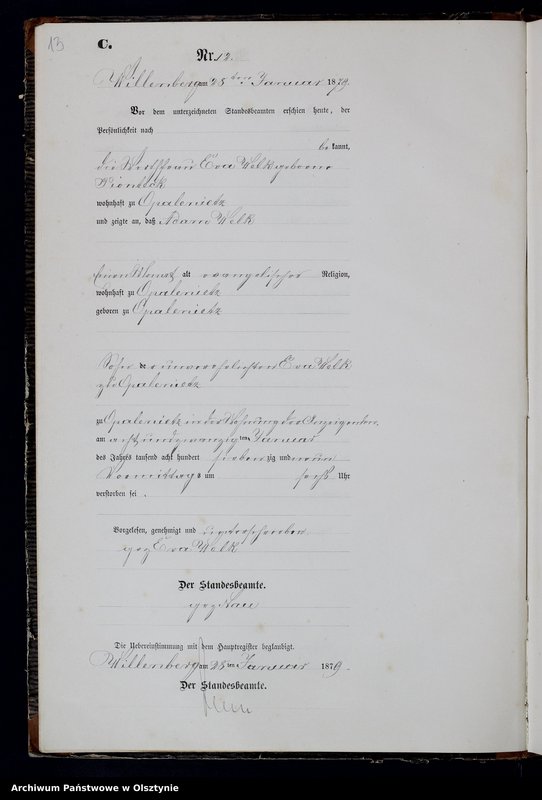 13
C.
Nr. 12.
Willenberg am 28 ten Januar 1879.
Vor dem unterzeichneten Standesbeamten erschien heute, der
Persönlichkeit nach
be kannt,
die Eva Walk geborene
wohnhaft zu Opalenietz
und zeigte an, daß Adam Walk
einen Monat alt evangelischer Religion,
wohnhaft zu Opalenietz
geboren zu Opalenietz
Sohn der unverehelichten Eva Walk
zu Opalenietz
zu Opalenietz in der Wohnung der Anzeigenden
am acht und zwanzig ten Januar
des Jahres tausend acht hundert sieben zig und neun
Vormittags um sechs Uhr
verstorben sei.
Vorgelesen, genehmigt und unterschrieben
gez Eva Walk
Der Standesbeamte.
gez
Die Uebereinstimmung mit dem Hauptregister beglaubigt.
Willenberg am 28 ten Januar 1879.
Der Standesbeamte.
Archiwum Państwowe w Olsztynie